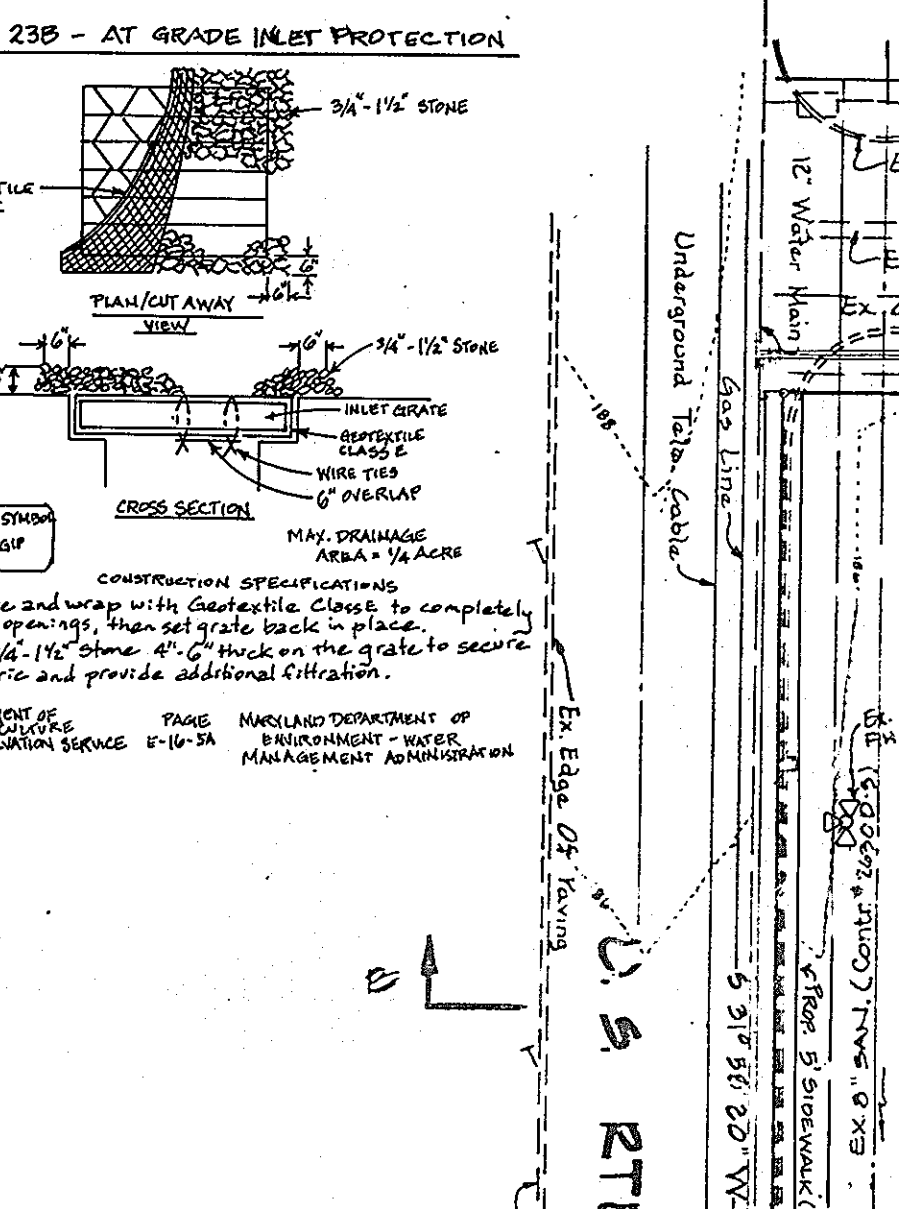 23B - AT GRADE INLET PROTECTION
3/4" - 1 1/2" STONE
TILE
6"
6"
PLAN/CUT AWAY
VIEW
6"
6"
3/4" - 1 1/2" STONE
INLET GRATE
GEOTEXTILE
CLASS E
WIRE TIES
6" OVERLAP
CROSS SECTION
SYMBOL
GIP
MAX. DRAINAGE
AREA = 1/4 ACRE
CONSTRUCTION SPECIFICATIONS
e and wrap with Geotextile Class E to completely
openings, then set grate back in place.
3/4" - 1 1/2" Stone 4"-6" thick on the grate to secure
ric and provide additional filtration.
MENT OF
CULTURE
VATION SERVICE
PAGE
E-16-5A
MARYLAND DEPARTMENT OF
ENVIRONMENT - WATER
MANAGEMENT ADMINISTRATION
Underground Tele. Cable
Gas Line
12" Water Main
Ex.
188
186
186
Ex. Edge Of Paving
U.S. RTE
PROP. 5' SIDEWALK
EX. 8" SAN. (Contr. #